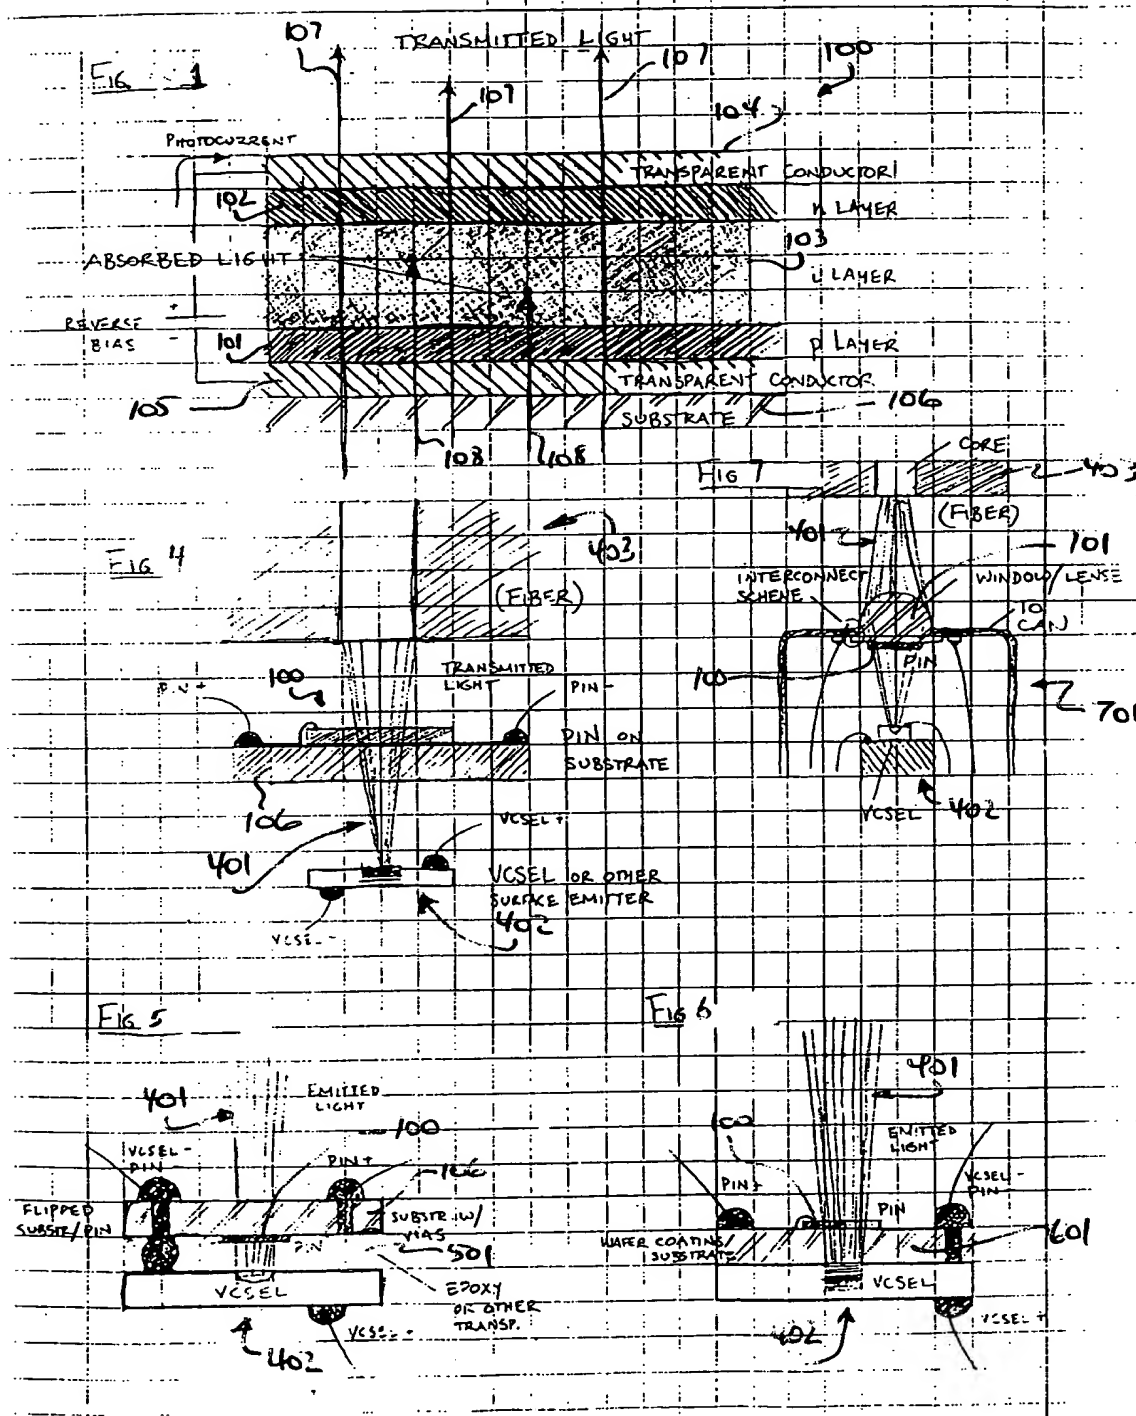 107
TRANSMITTED LIGHT
FIG 1
107
107
100
104
PHOTOCURRENT
TRANSPARENT CONDUCTOR
102
n LAYER
103
ABSORBED LIGHT
i LAYER
REVERSE
BIAS
+
-
101
p LAYER
TRANSPARENT CONDUCTOR
105
SUBSTRATE
106
108
108
FIG 7
CORE
403
(FIBER)
401
701
INTERCONNECT
SCHEME
WINDOW/LENSE
TO
CAN
PIN
100
701
VCSEL
402
FIG 4
403
(FIBER)
TRANSMITTED
LIGHT
100
PIN +
PIN -
PIN ON
SUBSTRATE
106
VCSEL +
401
VCSEL OR OTHER
SURFACE EMITTER
402
VCSEL -
FIG 5
401
EMITTED
LIGHT
100
VCSEL -
PIN -
PIN +
106
FLIPPED
SUBSTR/PIN
SUBSTR W/
VIAS
PIN
501
VCSEL
EPOXY
OR OTHER
TRANSP.
VCSEL +
402
FIG 6
401
100
EMITTED
LIGHT
PIN +
VCSEL -
PIN -
PIN
WAFER COATING/
SUBSTRATE
601
VCSEL
402
VCSEL +